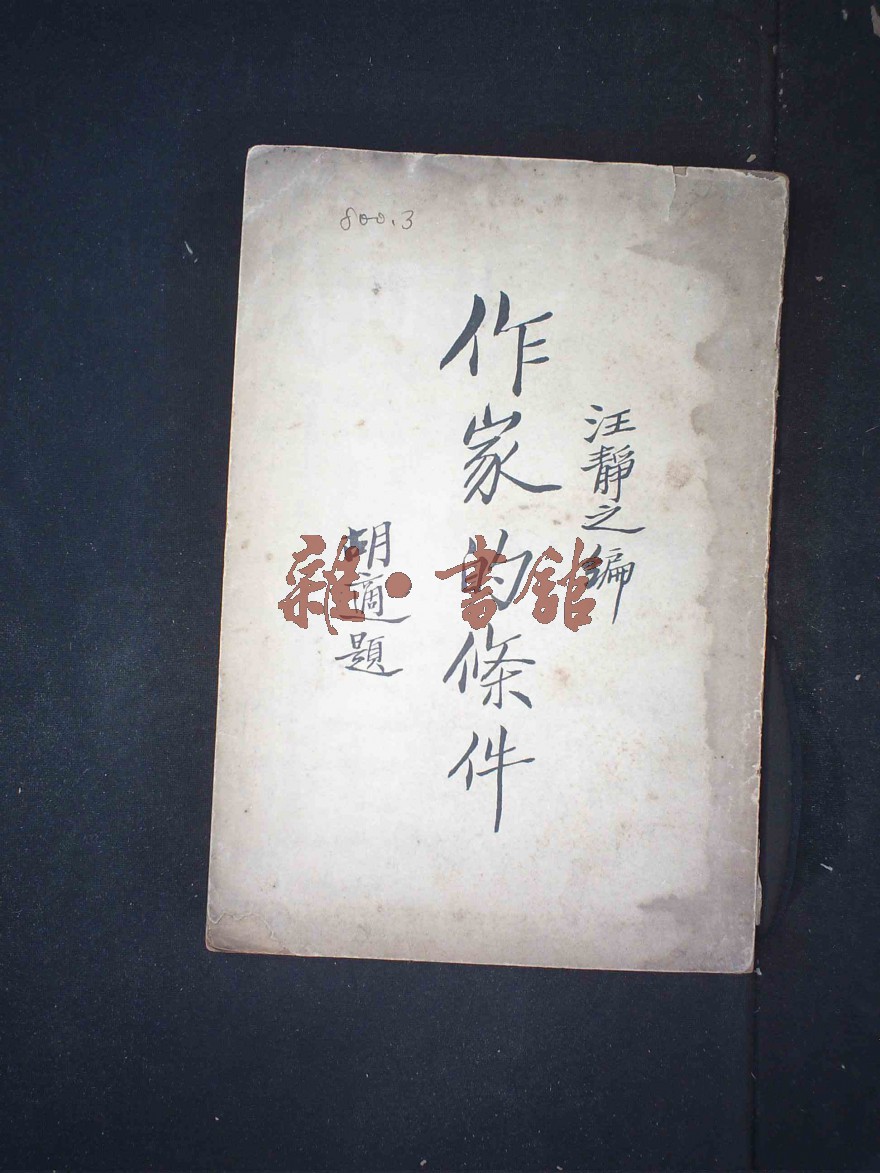 800.3
汪靜之編
作家的條件
胡適題
雜·書館